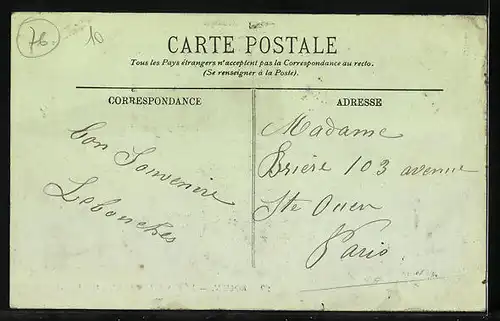 76
10
CARTE POSTALE
Tous les Pays étrangers n'acceptent pas la Correspondance au recto.
(Se renseigner à la Poste).
CORRESPONDANCE
Bon Souvenire
ADRESSE
Madame
Brière 103 avenue
Ste Ouen
Paris